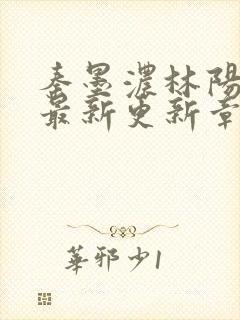 秦墨濃林陽
最新更新章
華邪少1